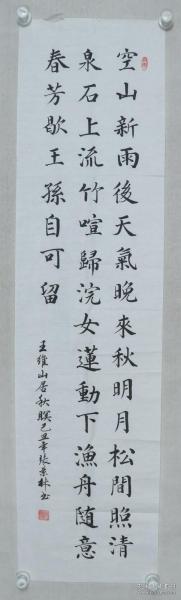 空山新雨後天氣晚來秋明月松間照清
泉石上流竹喧歸浣女蓮動下漁舟隨意
春芳歇王孫自可留
王維山居秋暝己丑年張京林書